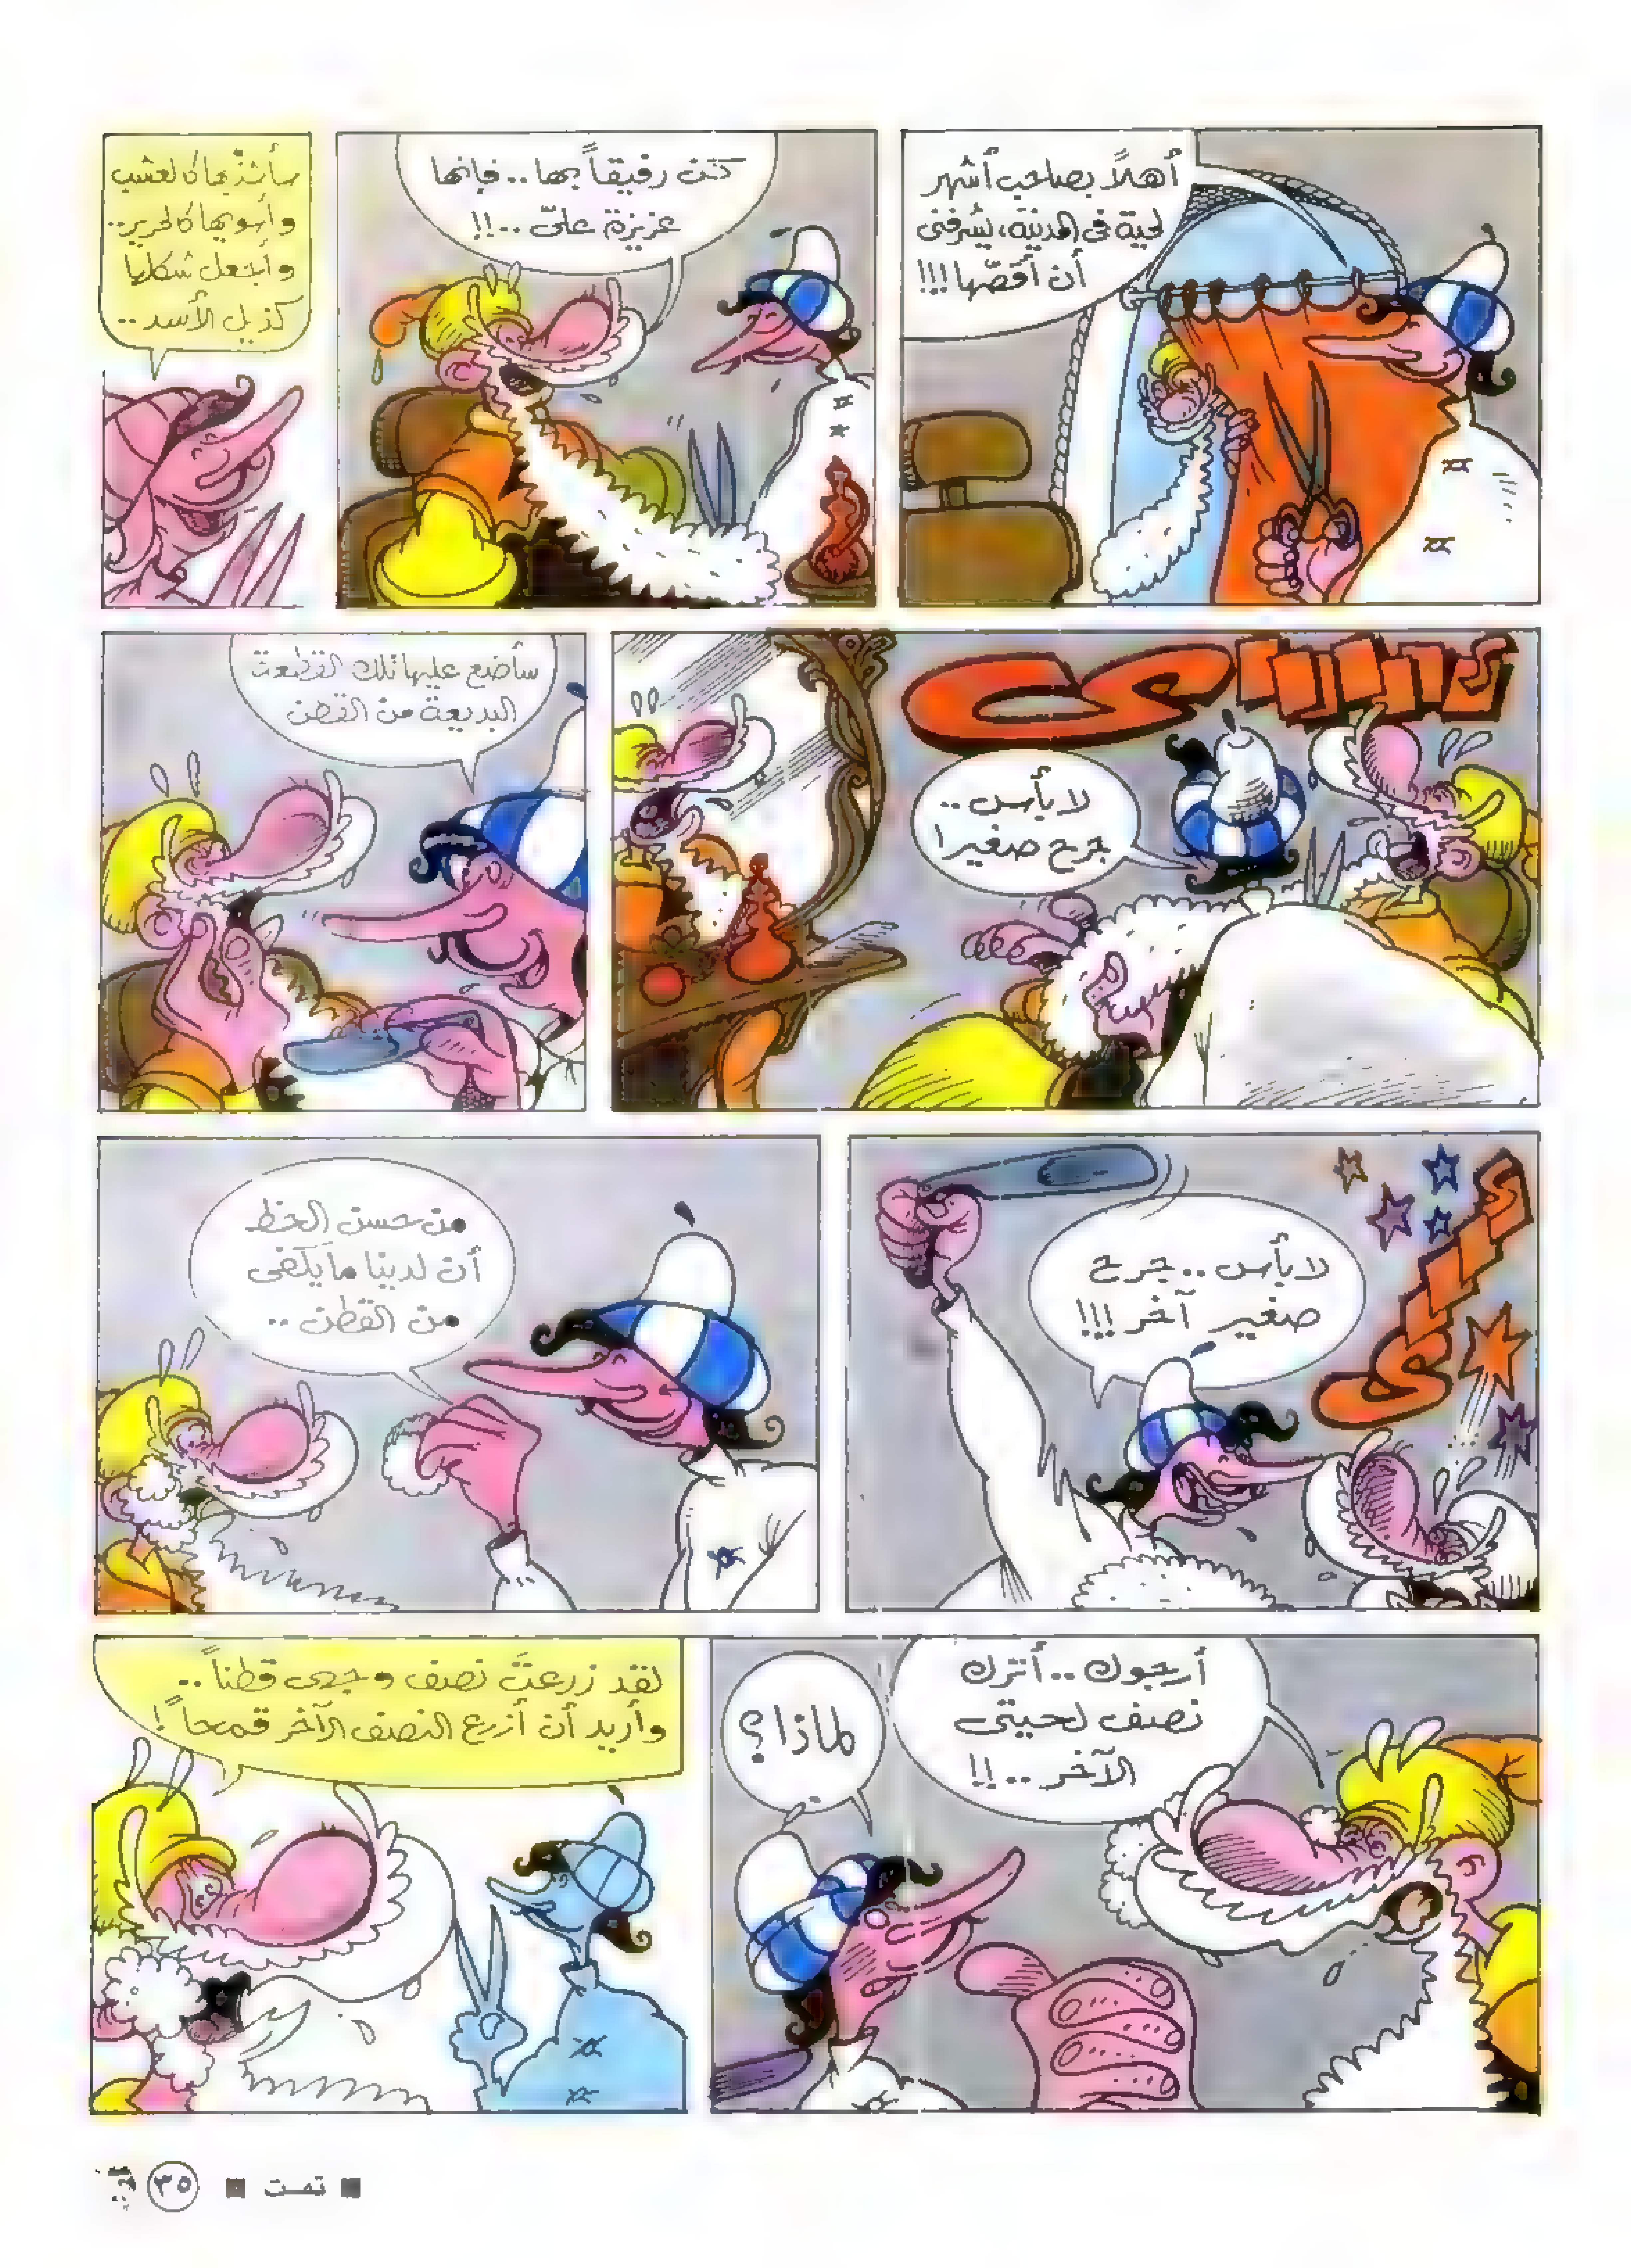 أهلاً بصاحب أشهر
لحية في المدينة، يشرفنى
أن أقصّها!!!
كن رفيقاً بها.. فإنها
عزيزة علىّ..!!
سأشذبها كالعشب
وأسويها كالحرير..
وأجعل شكلها
كذيل الأسد..
لا بأس..
جرح صغير!
سأضع عليها تلك القطعة
البديعة من القطن
لا بأس.. جرح
صغير آخر!!!
من حسن الحظ
أن لدينا ما يكفى
من القطن..
أرجوك.. أترك
نصف لحيتى
الآخر..!!
لماذا؟
لقد زرعت نصف وجهى قطناً..
وأريد أن أزرع النصف الآخر قمحاً!
■ تمت ■ ٣٥